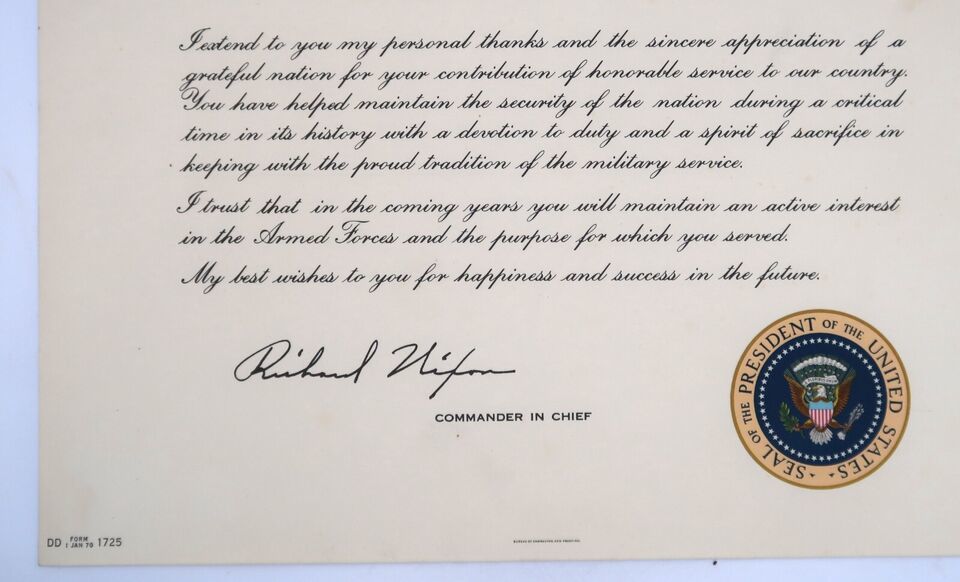 I extend to you my personal thanks and the sincere appreciation of a
grateful nation for your contribution of honorable service to our country.
You have helped maintain the security of the nation during a critical
time in its history with a devotion to duty and a spirit of sacrifice in
keeping with the proud tradition of the military service.
I trust that in the coming years you will maintain an active interest
in the Armed Forces and the purpose for which you served.
My best wishes to you for happiness and success in the future.
Richard Nixon
COMMANDER IN CHIEF
SEAL OF THE PRESIDENT OF THE UNITED STATES
DD FORM 1 JAN 70 1725